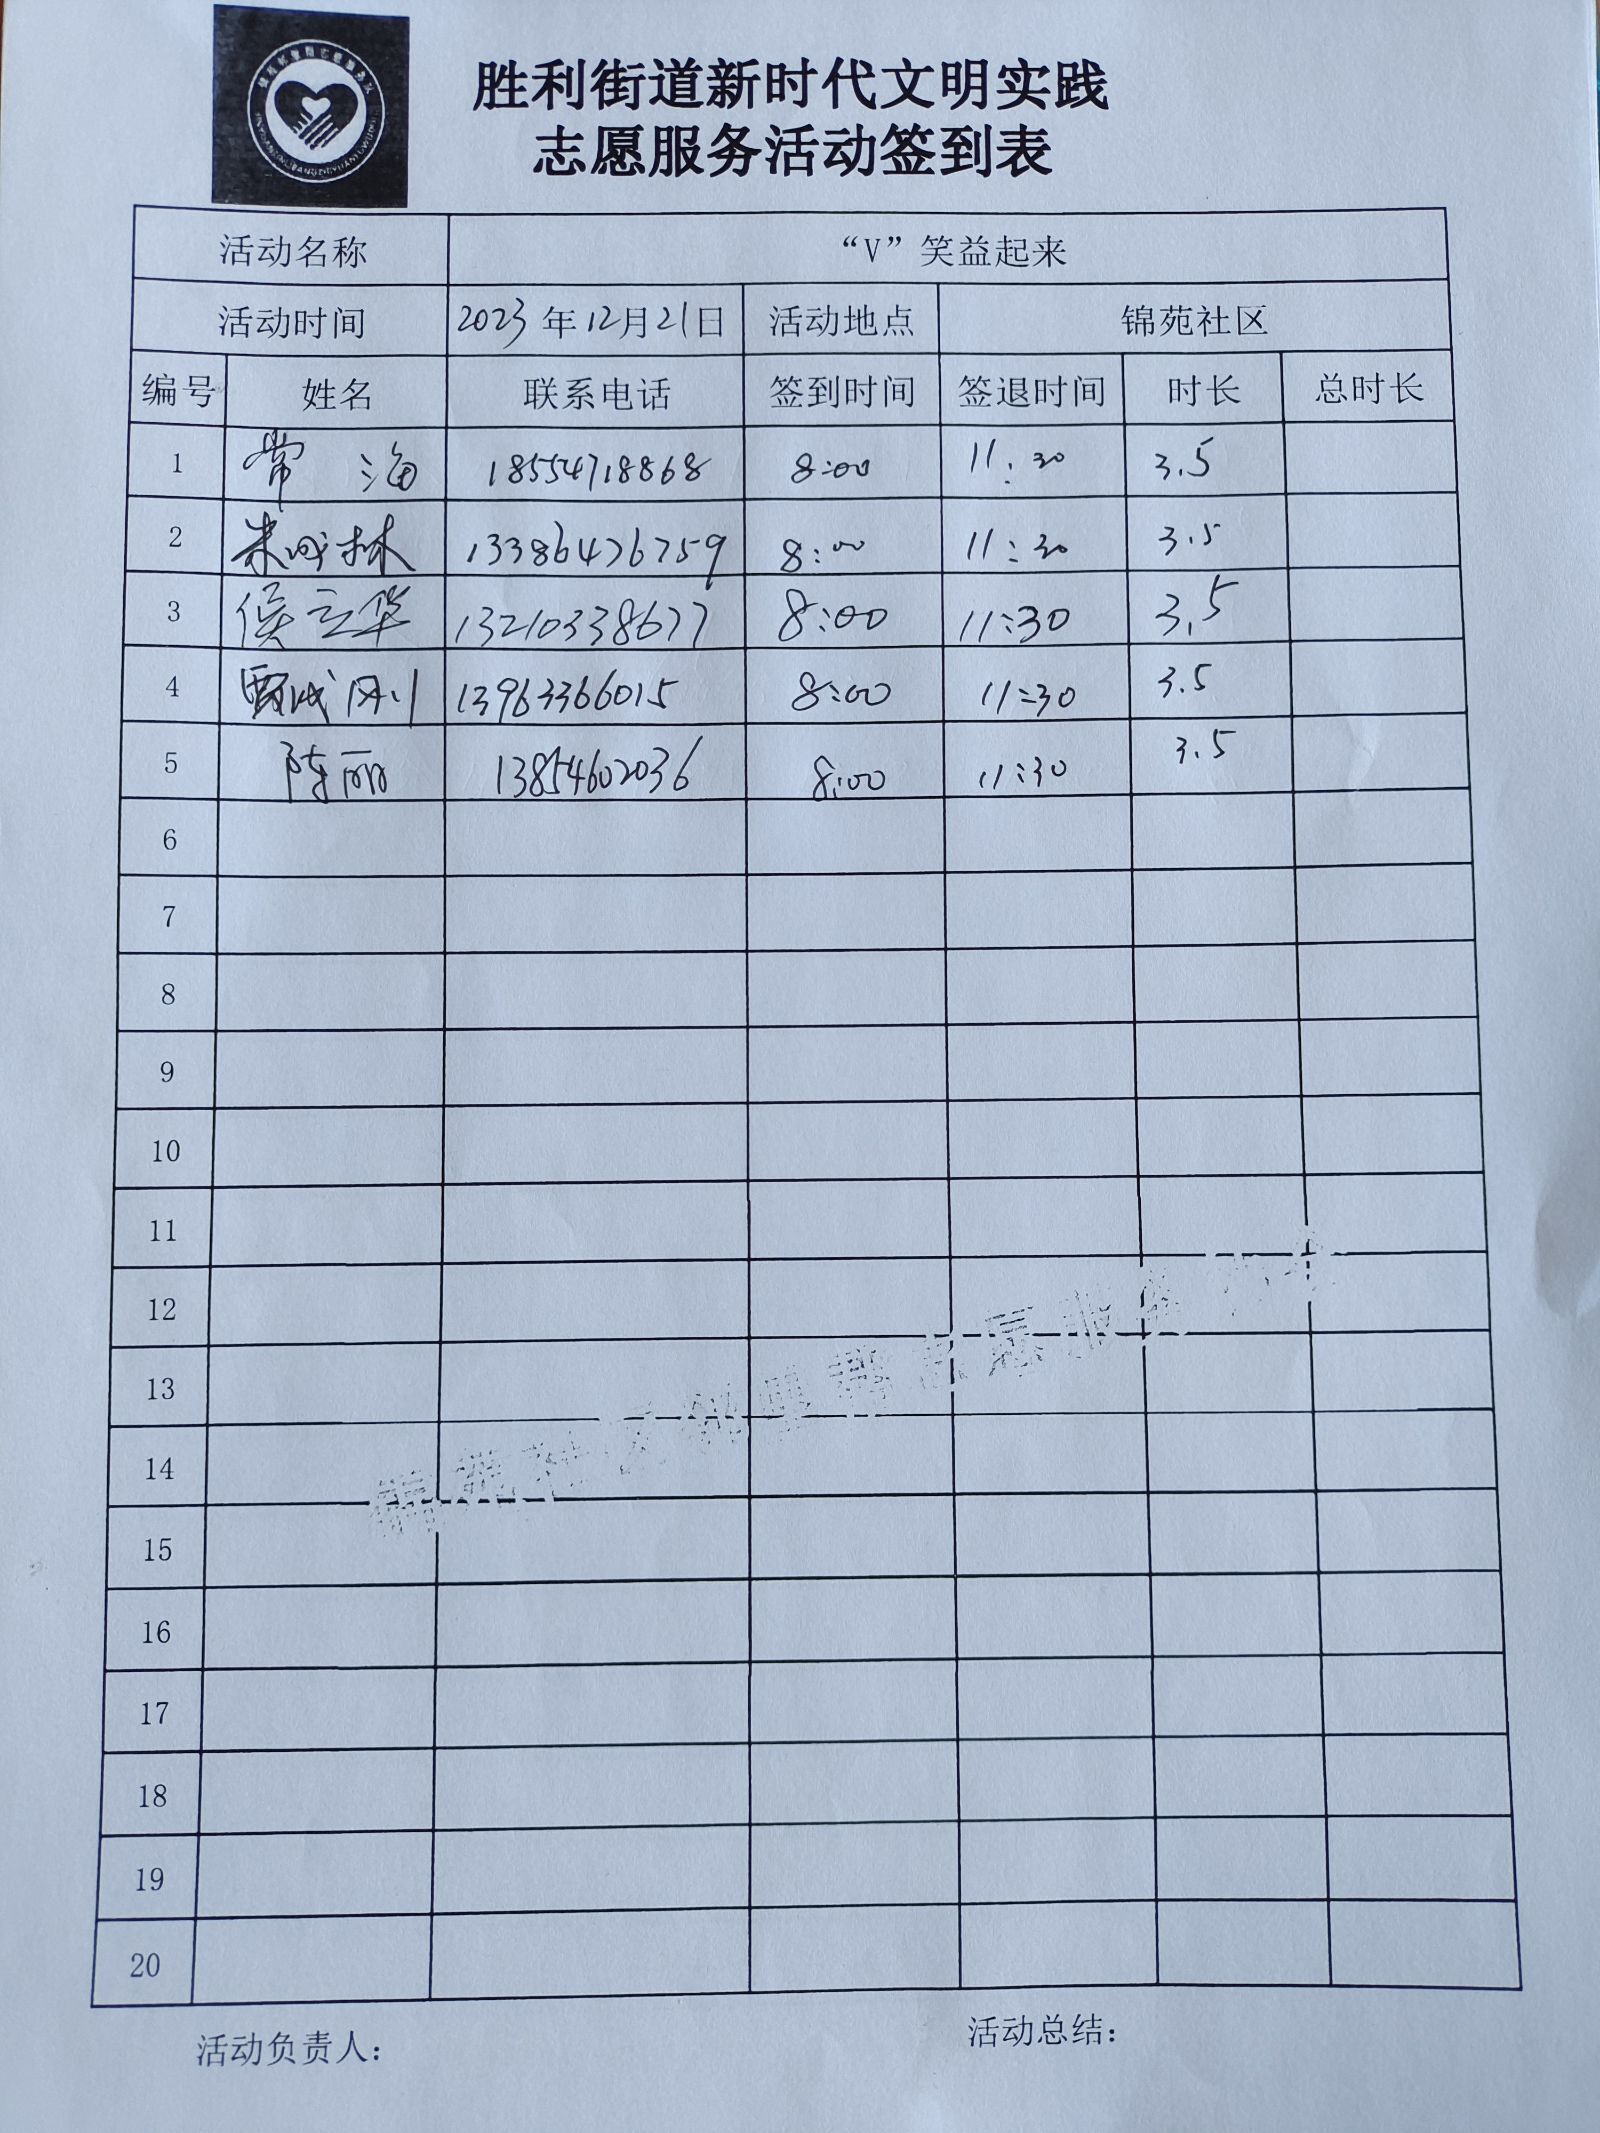 胜利街道新时代文明实践
志愿服务活动签到表
活动名称 “V”笑益起来
活动时间 2023年12月21日 活动地点 锦苑社区
编号 姓名 联系电话 签到时间 签退时间 时长 总时长
1 常海 18554718868 8:00 11:30 3.5
2 朱成林 13386476759 8:00 11:30 3.5
3 侯立华 13210338677 8:00 11:30 3.5
4 贾成刚 13963366015 8:00 11:30 3.5
5 陈丽 13854602036 8:00 11:30 3.5
6
7
8
9
10
11
12
13
14
15
16
17
18
19
20
活动负责人：
活动总结：